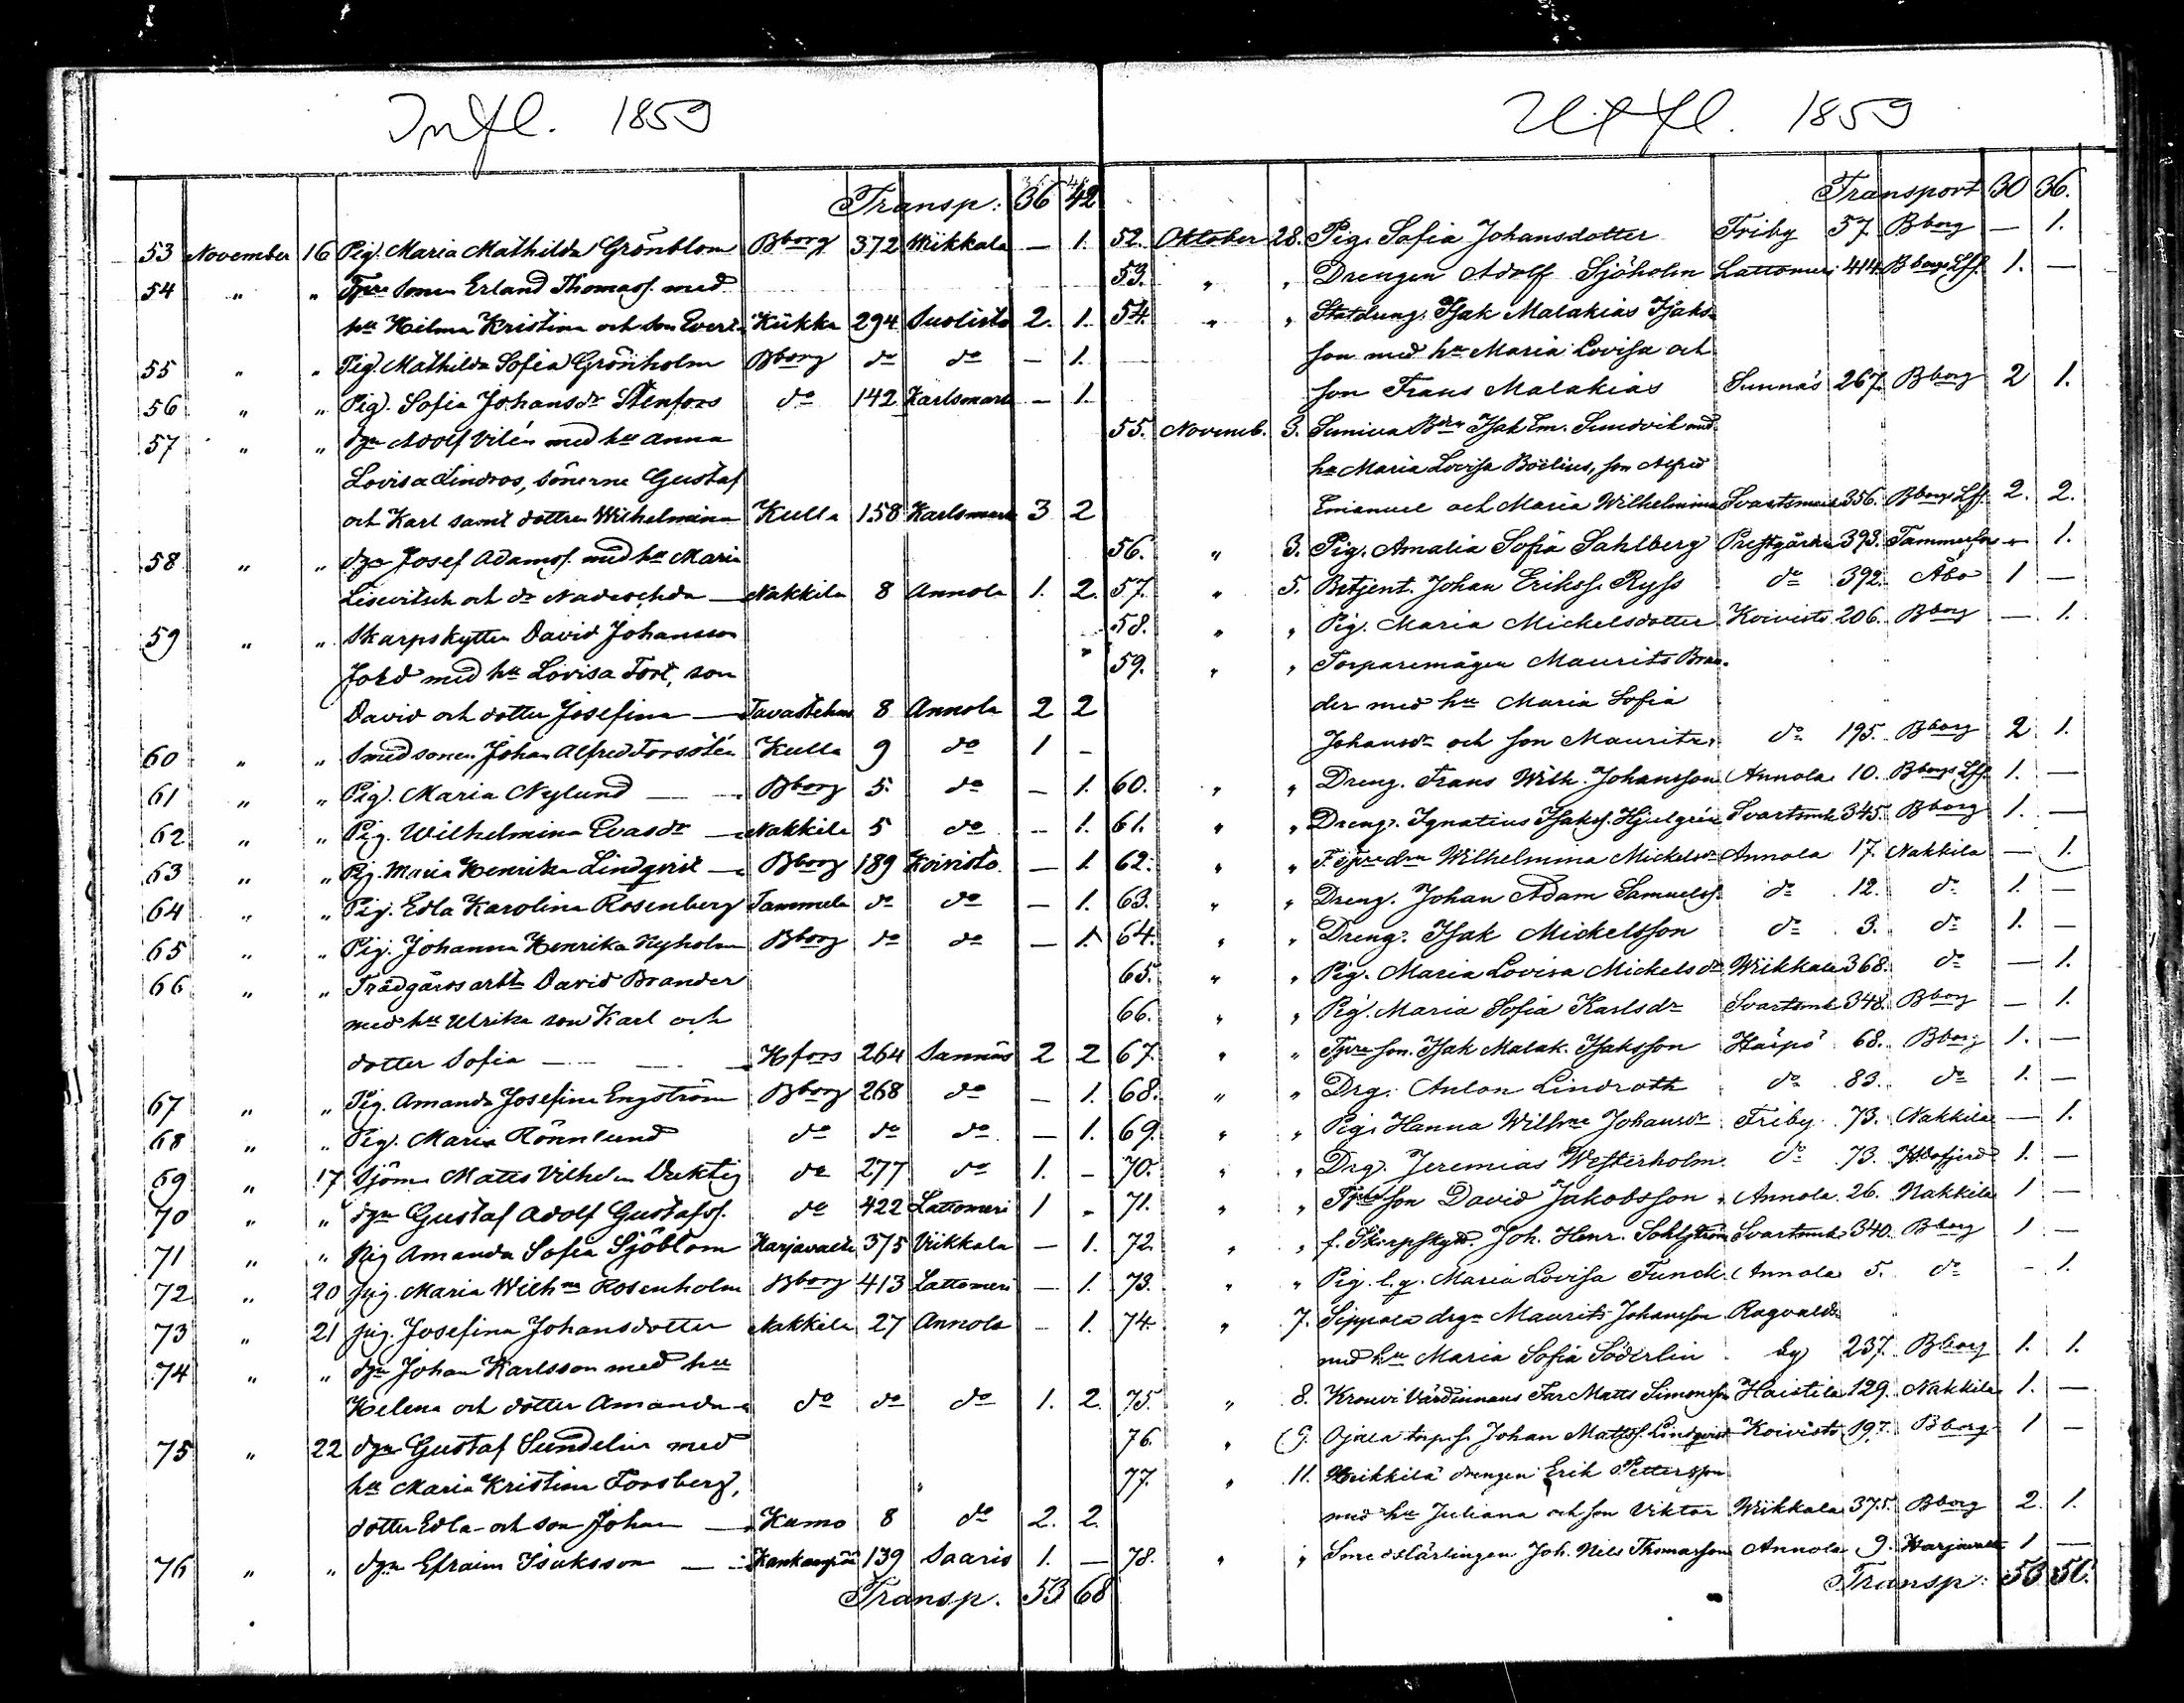 Infl. 1859
Transp: 36 42
53 November 16 Pig. Maria Mathilda Grönblom Bborg 372 Wiikkala — 1.
54 " " Tpre sonen Erland Thomass. med
hu Hilma Kristina och son Evert Kiikka 294 Suolisto 2. 1.
55 " " Pig. Mathilda Sofia Grönholm Bborg do do — 1.
56 " " Pig. Sofia Johansdr Stenfors do 142 Karlsmark — 1.
57 " " dgn Adolf Vilén med hu Anna
Lovisa Lindros, sönerne Gustaf
och Karl samt dottren Wilhelmina Kulla 158 Karlsmark 3 2
58 " " dgn Josef Adamss. med hu Maria
Lisevitsch och dr Nadeschda — Nakkila 8 Annola 1. 2.
59 " " Skarpskytten David Johansson
Jord med hu Lovisa Fort, son
David och dotter Josefina — Tavastehus 8 Annola 2 2
60 " " Smedsonen Johan Alfred Forsstén Kulla 9 do 1 -
61 " " Pig. Maria Nylund — Bborg 5 do — 1.
62 " " Pig. Wilhelmina Evasdr — Nakkila 5 do — 1.
63 " " Pig. Maria Henrika Lindqvist — Bborg 189 Koivisto — 1.
64 " " Pig. Edla Karolina Rosenberg Tammela do do — 1.
65 " " Pig. Johanna Henrika Nyholm Bborg do do — 1.
66 " " Trädgårdsarbtn David Brander
med hu Ulrika son Karl och
dotter Sofia — Hfors 264 Sannäs 2 2
67 " " Pig. Amanda Josefina Engström Bborg 268 do — 1.
68 " " Pig. Maria Rönnlund do do do — 1.
69 " 17 Sjöm. Matts Vilhelm Duktig do 277 do 1. -
70 " " dgn Gustaf Adolf Gustafss. do 422 Lattomeri 1 -
71 " " pig Amanda Sofia Sjöblom Harjavalta 375 Viikkala — 1.
72 " 20 pig. Maria Wilhna Rosenholm Bborg 413 Lattomeri — 1.
73 " 21 pig. Josefina Johansdotter Nakkila 27 Annola — 1.
74 " " dgn Johan Karlsson med hu
Helena och dotter Amanda do do do 1. 2.
75 " 22 dgn Gustaf Sundelin med
hu Maria Kristina Forsberg,
dotter Edla och son Johan — Kumo 8 do 2. 2.
76 " " dgn Efraim Isaksson — Kankaanpää 139 Saaris 1. —
Transp. 53 68
Utfl. 1859
Transport 30 36.
52. Oktober 28. Pig. Sofia Johansdotter Friby 57 Bborg — 1.
53. " " Drengen Adolf Sjöholm Lattomeri 414 Bborgs Lff. 1. —
54. " " Statdreng. Isak Malakias Isaks-
son med hu Maria Lovisa och
son Frans Malakias Sunnäs 267 Bborg 2 1.
55. Novemb. 3. Suniva Bdrn Isak Em. Sundvik med
hu Maria Lovisa Boëlius, son Alfred
Emanuel och Maria Wilhelmina Svartsmark 356. Bborgs Lff. 2. 2.
56. " 3. Pig. Amalia Sofia Sahlberg Prestgården 393. Tammerfors — 1.
57. " 5. Betjent. Johan Erikss. Ryss do 392. Åbo 1 —
58. " " Pig. Maria Mickelsdotter Koivisto 206. Bborg — 1.
59. " " Torparemågen Maurits Bran-
der med hu Maria Sofia
Johansdr och son Maurits. do 195. Bborg 2 1.
60. " " Dreng. Frans Wilh. Johansson Annola 10. Bborgs Lff. 1. —
61. " " Dreng. Ignatius Isakss. Hjelgrén Svartsmk 345. Bborg 1. —
62. " " F. Tpredrn Wilhelmina Mickelsdr Annola 17. Nakkila — 1.
63. " " Dreng. Johan Adam Samuelss. do 12. do 1. —
64. " " Dreng. Isak Mickelsson do 3. do 1. —
65. " " Pig. Maria Lovisa Mickelsdr Wiikkala 368. do — 1.
66. " " Pig. Maria Sofia Karlsdr Svartsmk 348. Bborg — 1.
67. " " Tpreson. Isak Malak. Isaksson Härpö 68. Bborg 1. —
68. " " Drg. Anton Lindroth do 83. do 1. —
69. " " Pig. Hanna Wilhna Johansdr Friby 73. Nakkila — 1.
70. " " Drg. Jeremias Westerholm. do 73. Hvittisfjerd 1. —
71. " " Tpreson David Jakobsson Annola 26. Nakkila 1 —
72. " " f. Skarpskytt. Joh. Henr. Sohlström Svartsmk 340. Bborg 1 —
73. " " Pig. l.q. Maria Lovisa Funck Annola 5. do - 1.
74. " 7. Sippola drgn Maurits Johansson Ragvalds
med hu Maria Sofia Söderlin by 237. Bborg 1. 1.
75. " 8. Krouvi Värdinnans Far Matts Simonsson Haistila 129. Nakkila 1. —
76. " 9. Ojala torp.s. Johan Mattss. Lindqvist Koivisto 197. Bborg 1 —
77. " 11. Heikkilä drengen Erik Pettersson
med hu Juliana och son Viktor Wiikkala 375. Bborg 2. 1.
78. " " Smedslärlingen Joh. Nils Thomasson Annola 9. Harjavalta 1 —
Transp: 53 51.